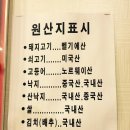 원산지표시
•돼지고기....벨기에산
•쇠고기......미국산
•고등어....노르웨이산
•낙지......중국산,국내산
•산낙지....국내산,중국산
•쌀..........국내산
•김치(배추)..국내산